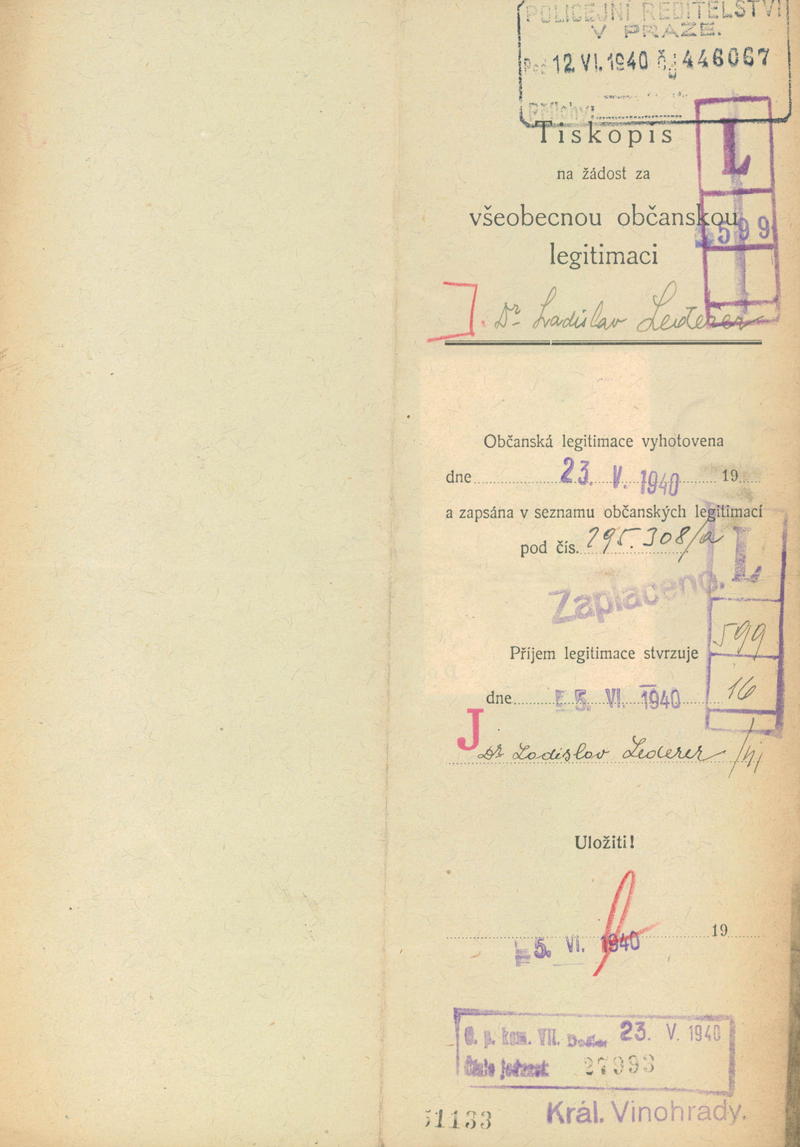 POLICEJNÍ ŘEDITELSTVÍ
V PRAZE.
12. VI. 1940 č.j. 446067
Přílohy:
Tiskopis
L
na žádost za
všeobecnou občanskou
599
legitimaci
J. Dr. Ladislav Lederer
Občanská legitimace vyhotovena
dne 23. V. 1940 19
a zapsána v seznamu občanských legitimací
pod čís. 295.308/a
L
Zaplaceno.
599
Příjem legitimace stvrzuje
16
dne 5. VI. 1940
J
Dr Ladislav Lederer
Uložiti!
19
5. VI. 1940
kom. VII. 23. V. 1940
Číslo jednací 27993
51133 Král. Vinohrady.